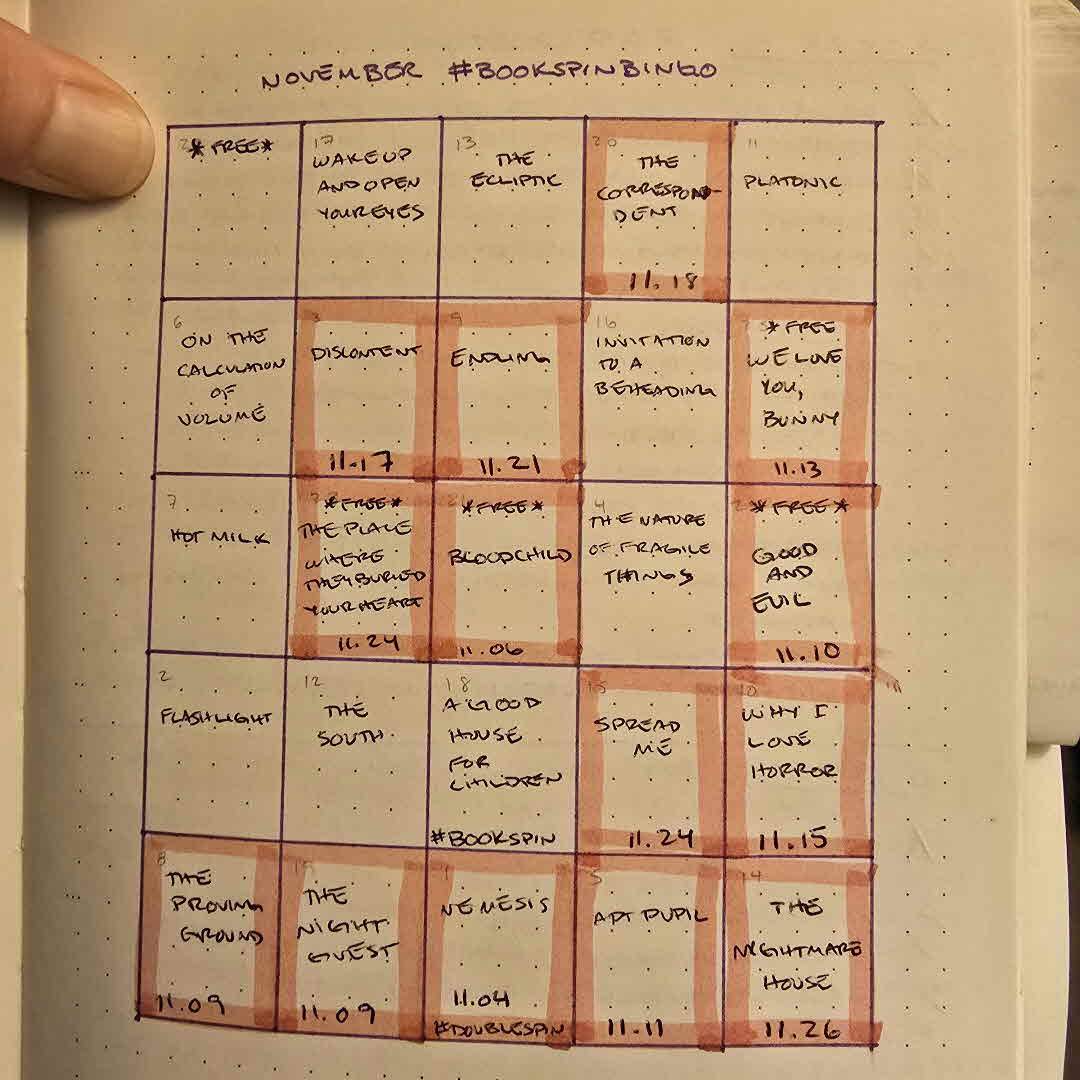 NOVEMBER #BOOKSPINBINGO
*FREE*
17
WAKE UP
AND OPEN
YOUR EYES
13
THE
ECLIPTIC
20
THE
CORRESPON-
DENT
11.18
11
PLATONIC
6
ON THE
CALCULATION
OF
VOLUME
3
DISCONTENT
11.17
9
ENDLING
11.21
16
INVITATION
TO A
BEHEADING
*FREE
WE LOVE
YOU,
BUNNY
11.13
7
HOT MILK
*FREE*
THE PLACE
WHERE
THEY BURIED
YOUR HEART
11.24
*FREE*
BLOODCHILD
11.06
4
THE NATURE
OF FRAGILE
THINGS
*FREE*
GOOD
AND
EVIL
11.10
2
FLASHLIGHT
12
THE
SOUTH
18
A GOOD
HOUSE
FOR
CHILDREN
#BOOKSPIN
15
SPREAD
ME
11.24
10
WHY I
LOVE
HORROR
11.15
8
THE
PROVING
GROUND
11.09
THE
NIGHT
GUEST
11.09
1
NEMESIS
11.04
#DOUBLESPIN
5
APT PUPIL
11.11
14
THE
NIGHTMARE
HOUSE
11.26